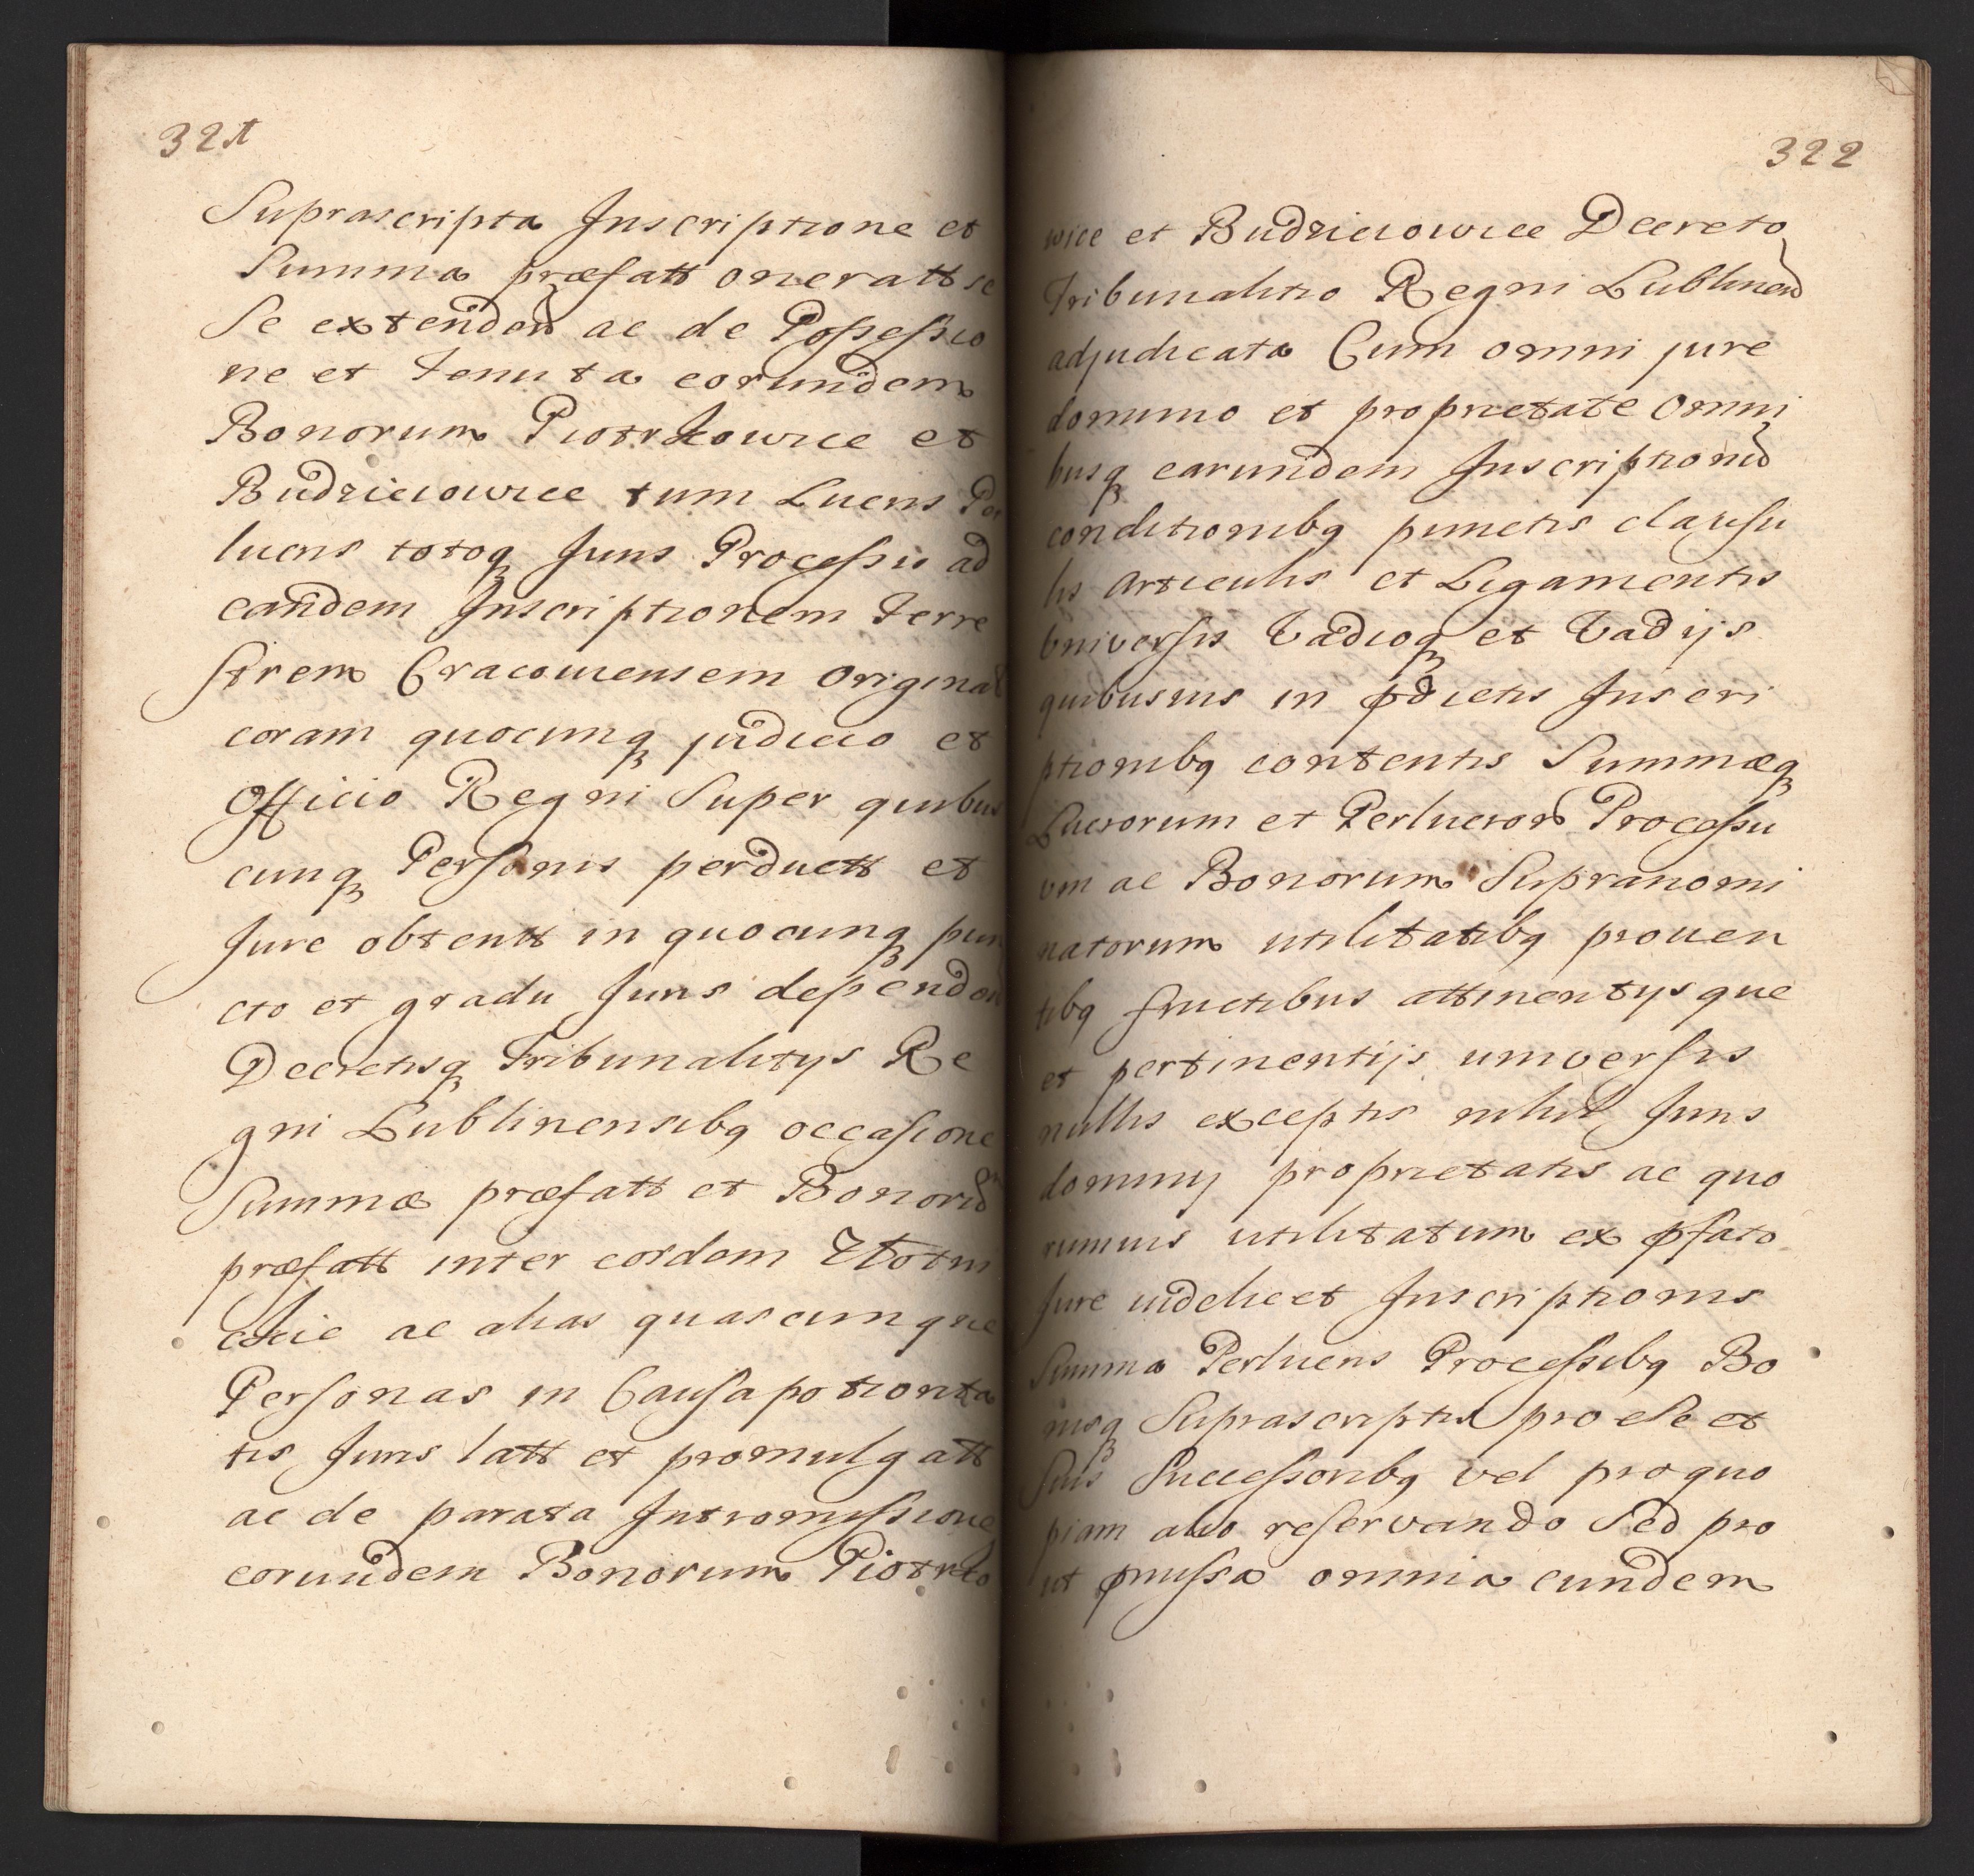 321
Suprascripta Inscriptione et
Summa præfatt oneratt se
se extenden ac de Possessio
ne et tenuta eorundem
Bonorum Piotrkowice et
Budzieiowice tum Lucris Per
lucris totoq Juris Processu ad
eandem Inscriptionem Terre
strem Cracouiensem Original
coram quocunq judicio et
Officio Regni Super quibus
cunq Personis perductt et
Jure obtentt in quocunq pun
cto et gradu Juris dependen
Decretisq Tribunalitys Re
gni Lublinensibq occasione
Summæ præfatt et Bonorum
præfatt inter eosdem
ac alias quascunque
Personas in Causa potiorita
tis Juris latt et promulgatt
ac de parata Intromissione
eorundem Bonorum Piotrko
322
wice et Budzieiowice Decreto
Tribunalitio Regni Lublinen
adjudicata Cum omni jure
dominio et proprietate omni
busq earundem Inscriptionum
conditionibq punctis clausu
lis Articulis et Ligamentis
Universis Vadioq et Vadijs
quibusuis in pdictis Inscri
ptionibq contentis Summæq
Lucrorum et Perlucror Processu
um ac Bonorum Supranomi
natorum utilitatibq prouen
tibq fructibus attinentysque
et pertinentijs universis
nullis exceptis nihil Juris
dominy proprietatis ac quo
rumuis utilitatum ex pfato
Jure uidelicet Inscriptionis
Summa Perlucris Processibq Bo
nisq Suprascriptis pro se et
suis Successoribq vel pro quo
piam alio reservando Sed pro
ut pmissa omnia eundem